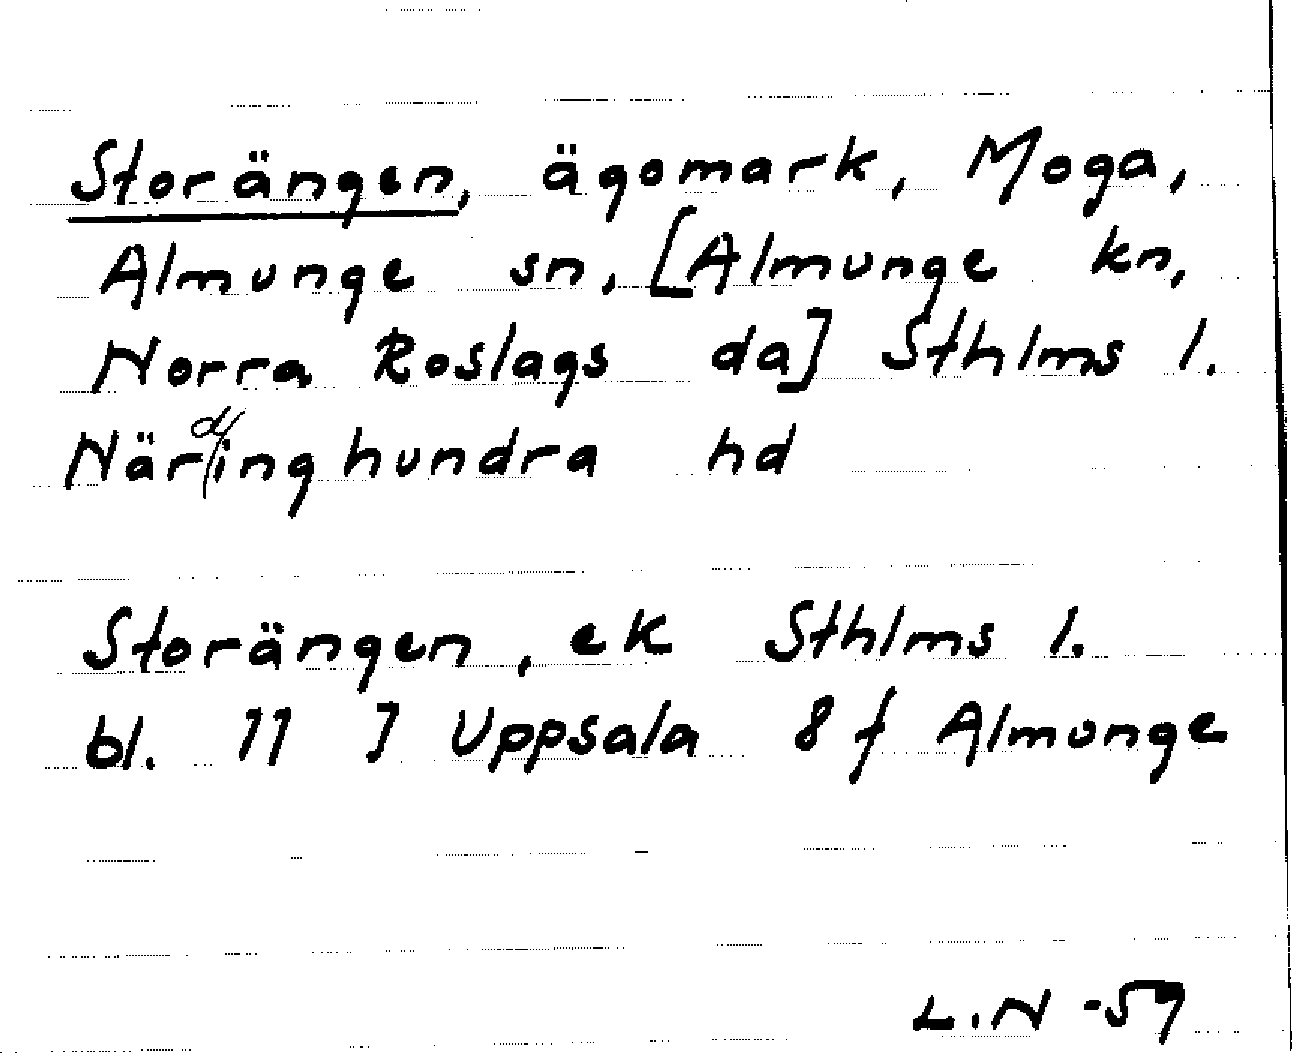 Storängen, ägomark, Moga,
Almunge sn, [Almunge kn,
Norra Roslags da] Sthlms l.
Närdinghundra hd
Storängen, ek Sthlms l.
bl. 11 J Uppsala 8 f Almunge
L.N -59